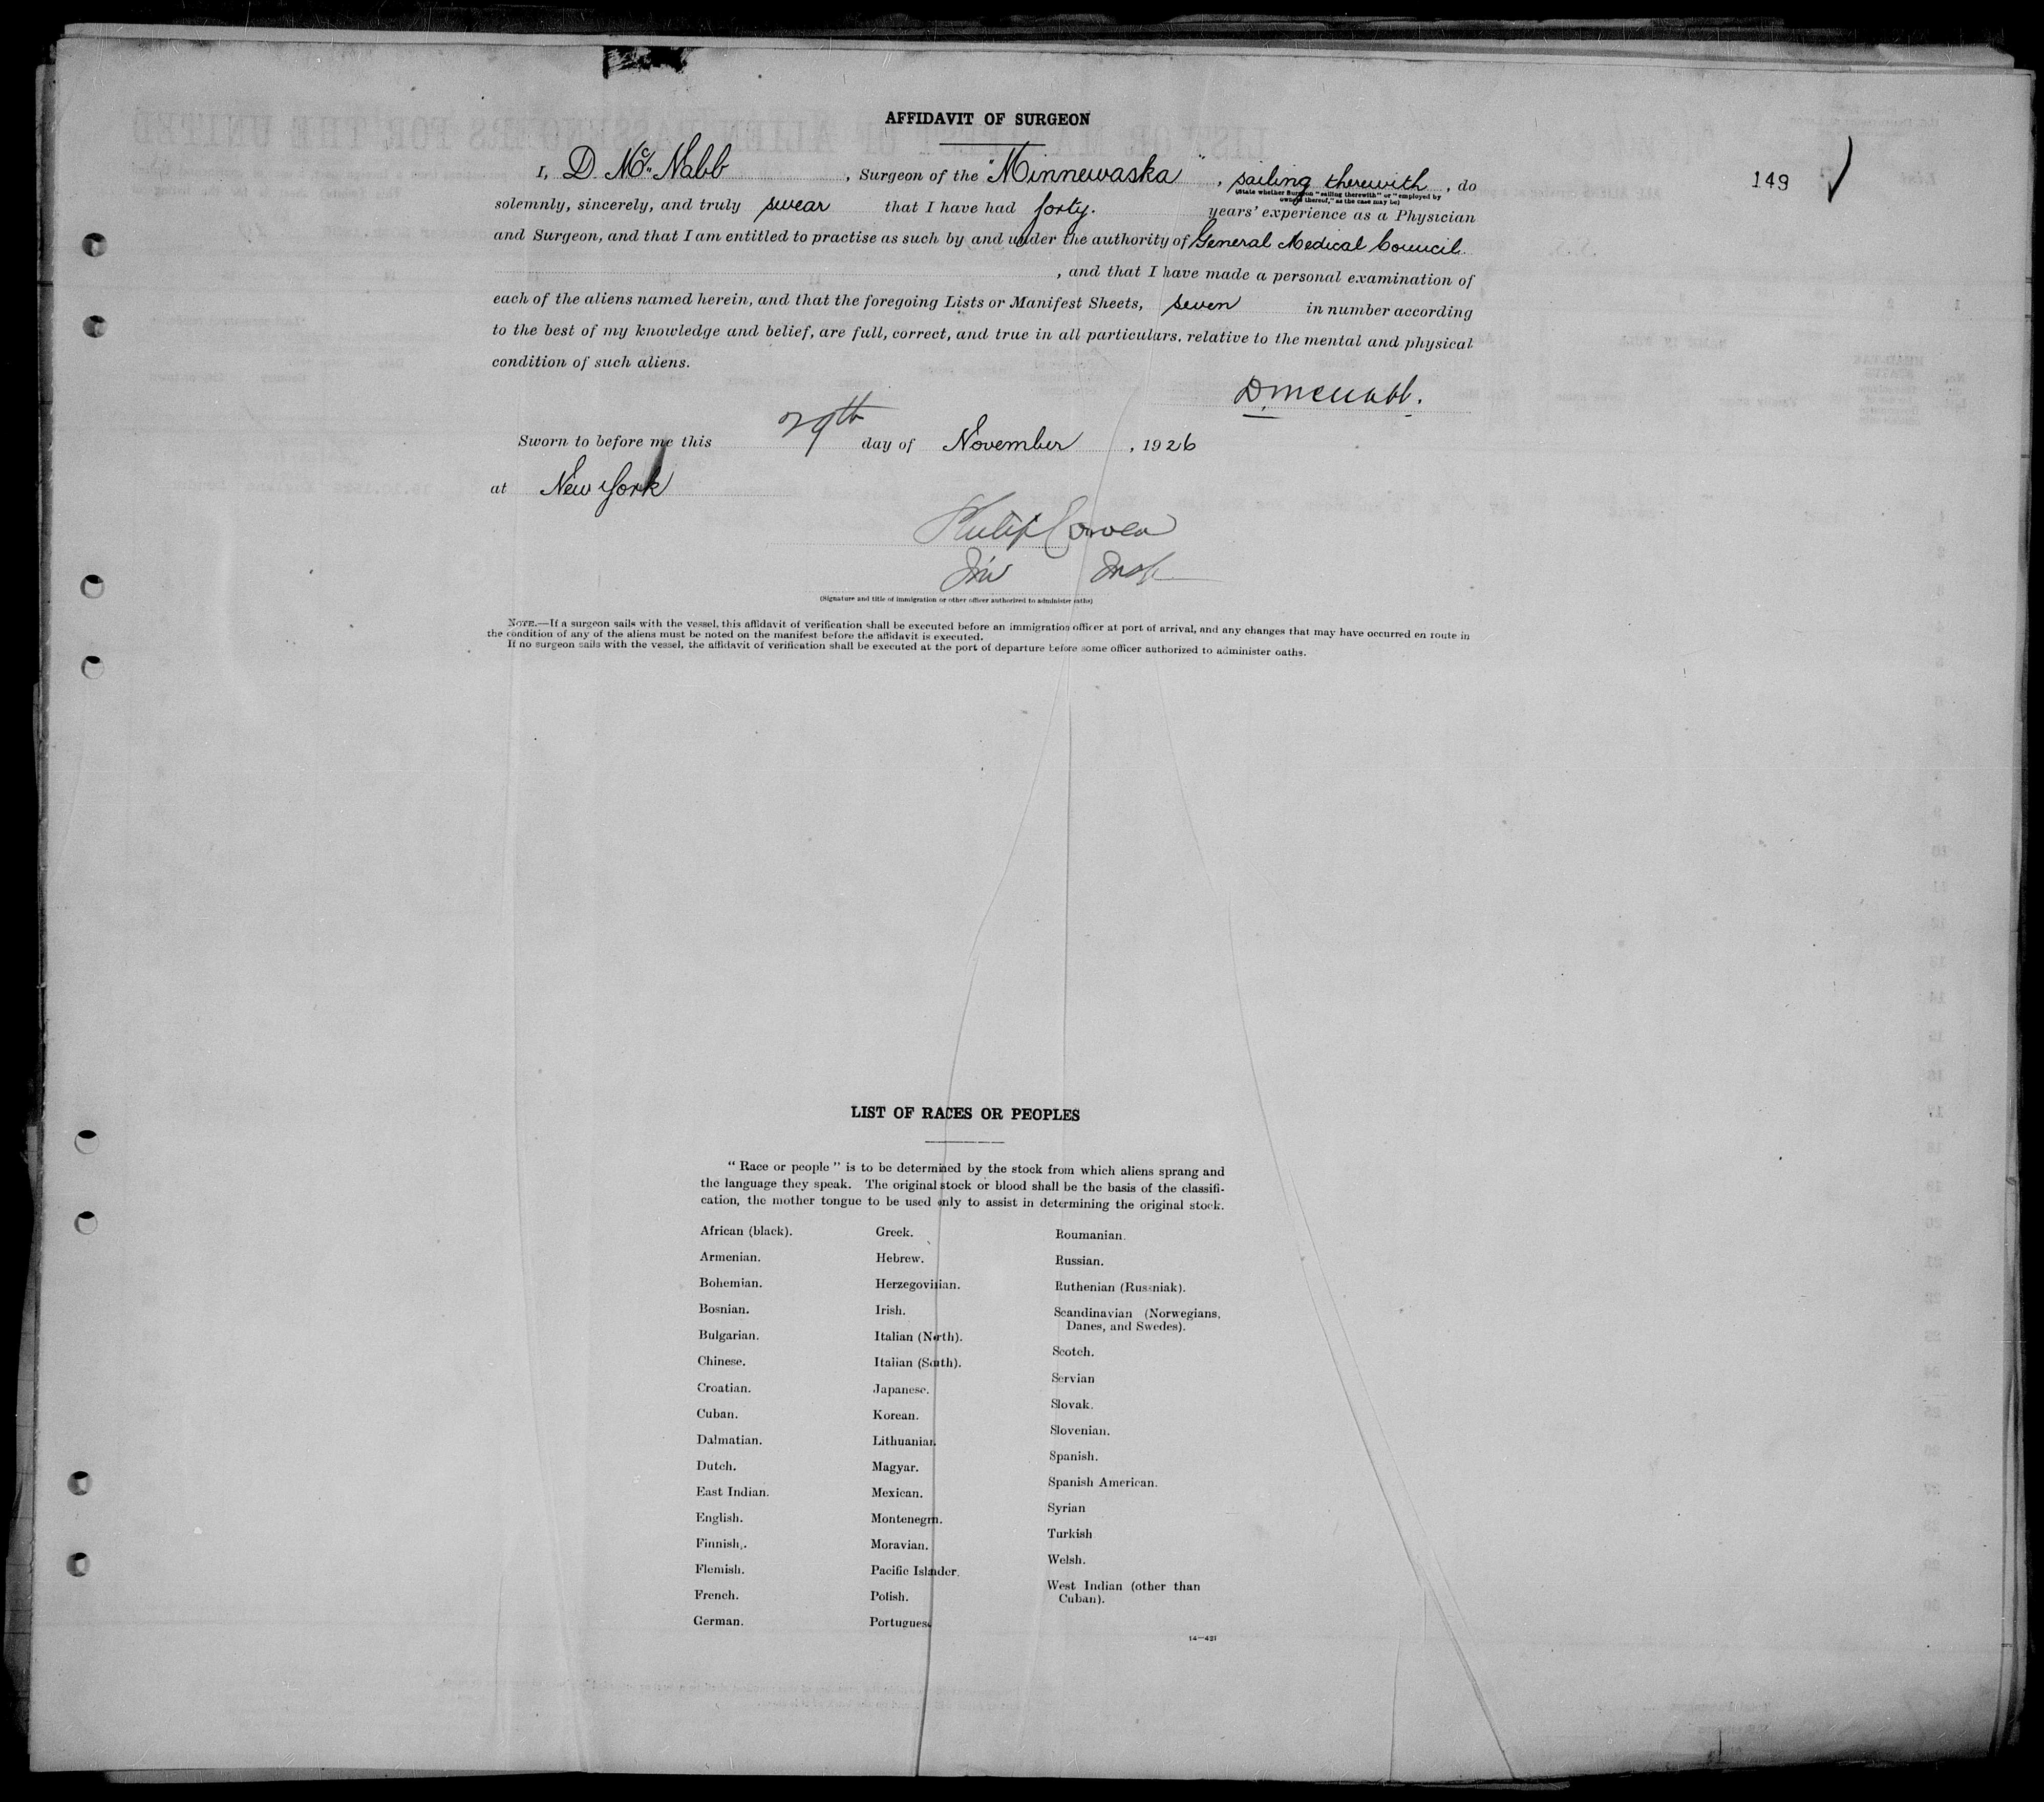 AFFIDAVIT OF SURGEON
149
I, D. Mc. Nabb, Surgeon of the "Minnewaska", sailing therewith, do
(State whether Surgeon "sailing therewith" or "employed by
owners thereof," as the case may be)
solemnly, sincerely, and truly swear that I have had forty. years' experience as a Physician
and Surgeon, and that I am entitled to practise as such by and under the authority of General Medical Council.
, and that I have made a personal examination of
each of the aliens named herein, and that the foregoing Lists or Manifest Sheets, seven in number according
to the best of my knowledge and belief, are full, correct, and true in all particulars, relative to the mental and physical
condition of such aliens.
D. McNabb.
Sworn to before me this 29th day of November, 1926
at New York
Philip Cowen
Im Insp
(Signature and title of immigration or other officer authorized to administer oaths)
NOTE.—If a surgeon sails with the vessel, this affidavit of verification shall be executed before an immigration officer at port of arrival, and any changes that may have occurred en route in
the condition of any of the aliens must be noted on the manifest before the affidavit is executed.
If no surgeon sails with the vessel, the affidavit of verification shall be executed at the port of departure before some officer authorized to administer oaths.
LIST OF RACES OR PEOPLES
"Race or people" is to be determined by the stock from which aliens sprang and
the language they speak. The original stock or blood shall be the basis of the classifi-
cation, the mother tongue to be used only to assist in determining the original stock.
African (black).
Armenian.
Bohemian.
Bosnian.
Bulgarian.
Chinese.
Croatian.
Cuban.
Dalmatian.
Dutch.
East Indian.
English.
Finnish.
Flemish.
French.
German.
Greek.
Hebrew.
Herzegovinian.
Irish.
Italian (North).
Italian (South).
Japanese.
Korean.
Lithuanian.
Magyar.
Mexican.
Montenegrin.
Moravian.
Pacific Islander.
Polish.
Portuguese
Roumanian.
Russian.
Ruthenian (Russniak).
Scandinavian (Norwegians,
Danes, and Swedes).
Scotch.
Servian
Slovak.
Slovenian.
Spanish.
Spanish American.
Syrian
Turkish
Welsh.
West Indian (other than
Cuban).
14—421